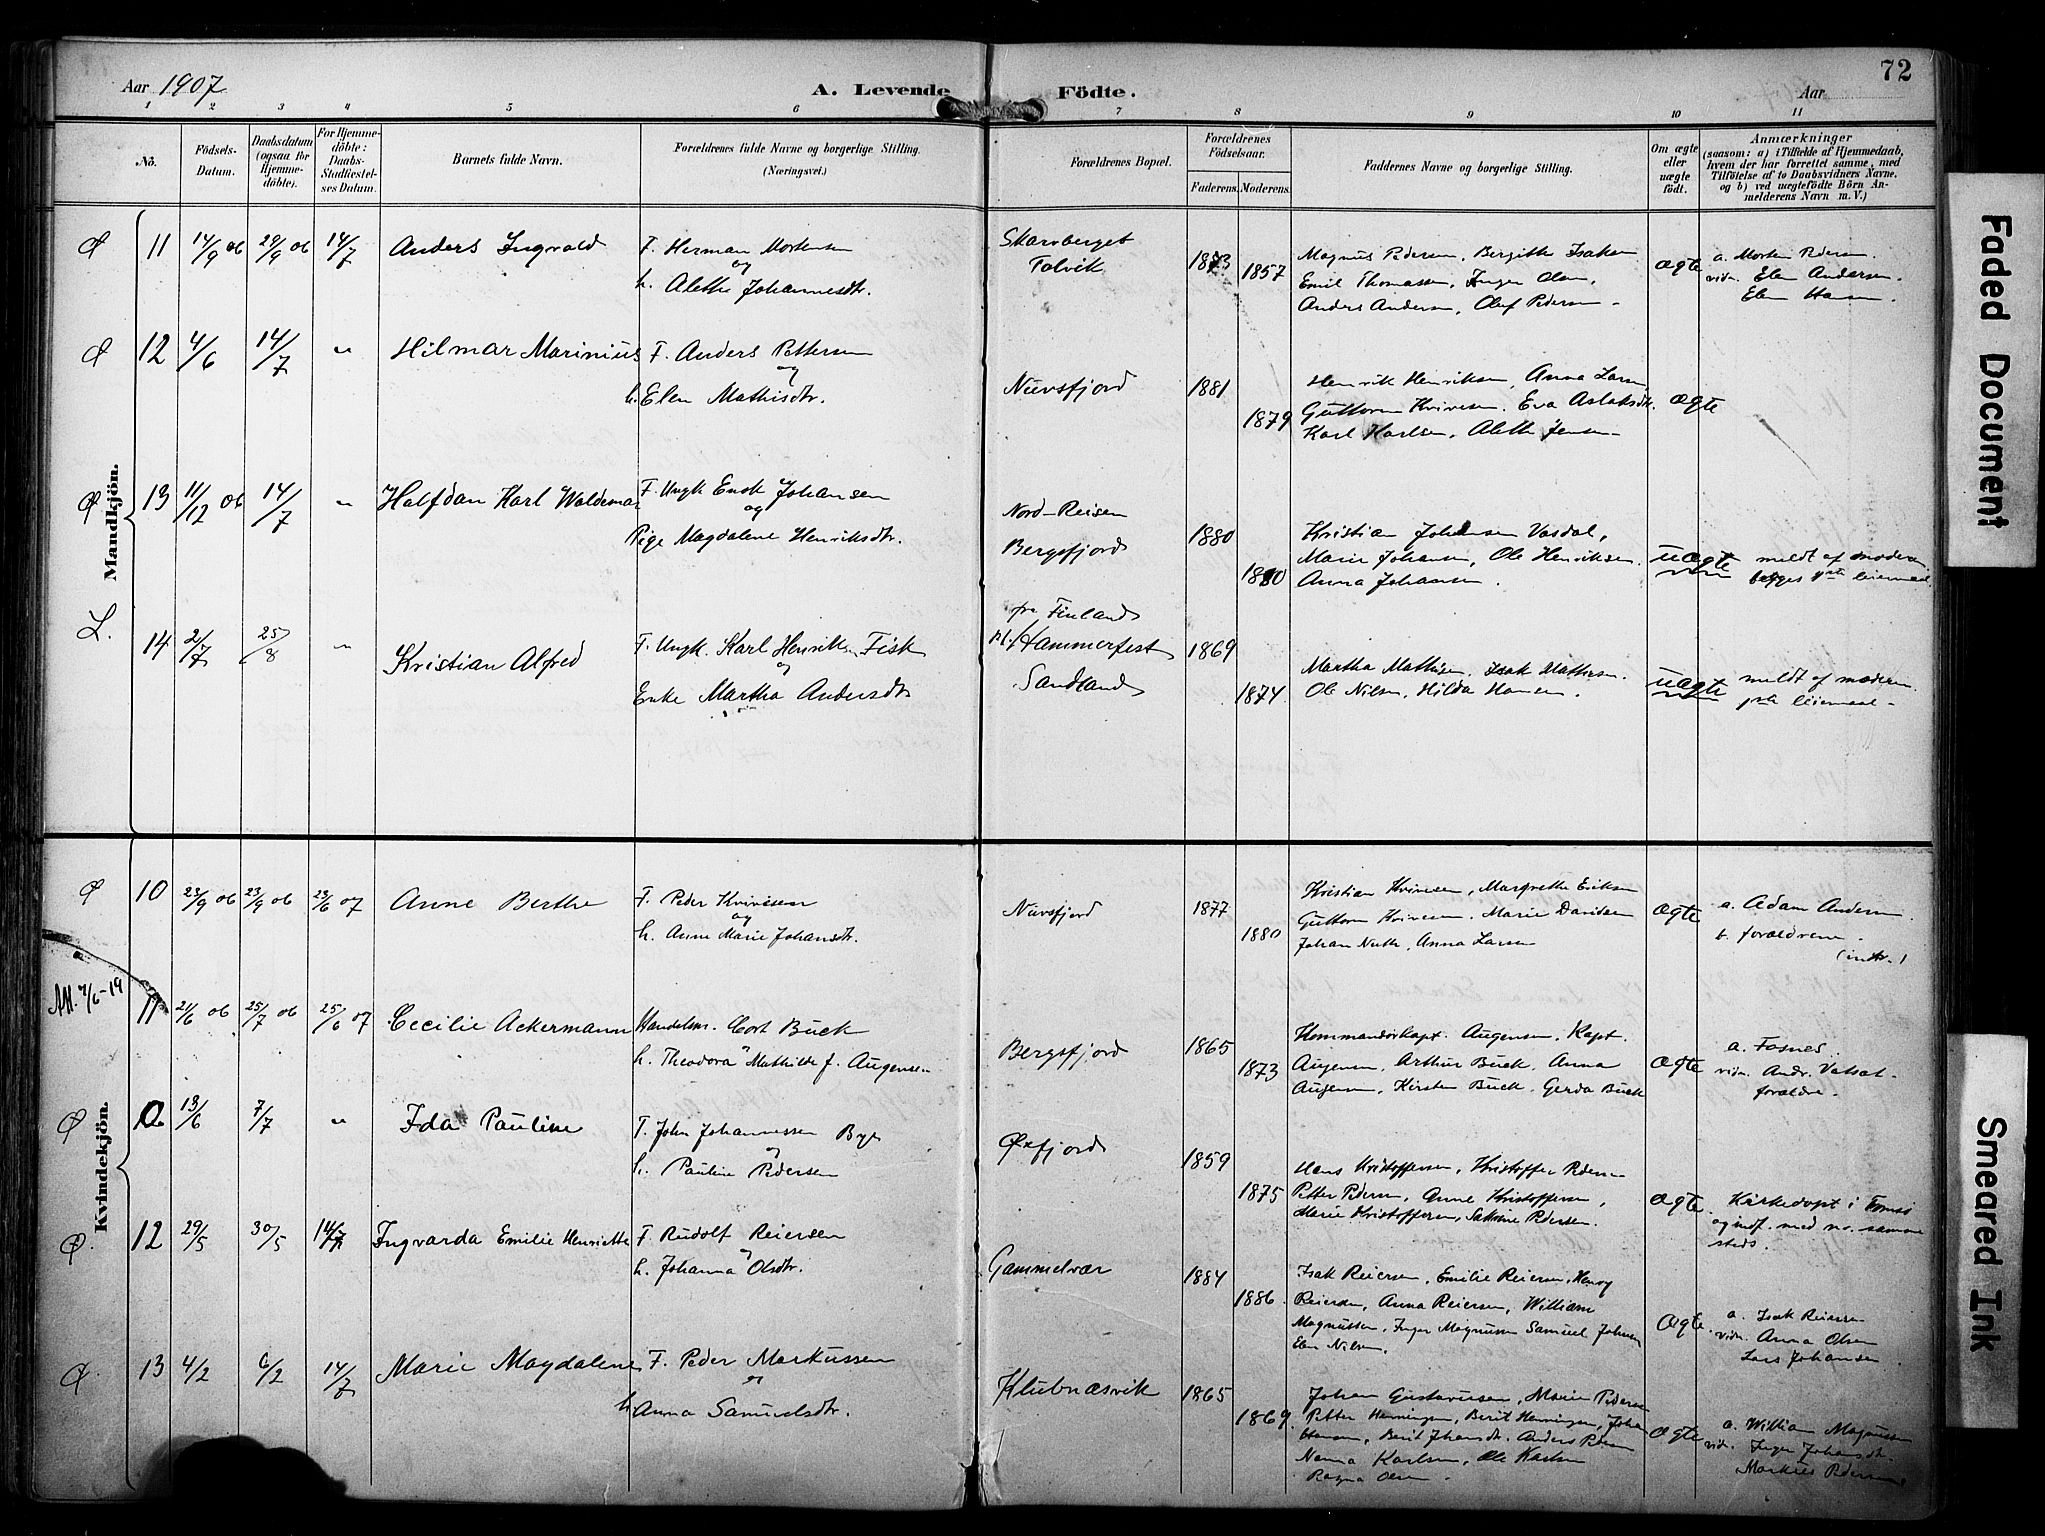 72
Aar 1907
A. Levende Födte.
Aar
1 2 3 4 5 6 7 8 9 10 11
No.
Födsels-Datum.
Daabsdatum (ogsaa for Hjemme-döbte).
For Hjemme-döbte: Daabs-Stadfæstel-ses Datum.
Barnets fulde Navn.
Forældrenes fulde Navne og borgerlige Stilling.
(Næringsvei.)
Forældrenes Bopæl.
Forældrenes Födselsaar.
Faderens. Moderens.
Faddernes Navne og borgerlige Stilling.
Om ægte eller uægte födt.
Anmærkninger
(saasom: a) i Tilfælde af Hjemmedaab, hvem der har forrettet samme, med Tilföielse af to Daabsvidners Navne. og b) ved uægtefödte Börn An-melderens Navn m.V.)
Mandkjön.
Ø 11 14/9 06 29/9 06 14/7 Anders Ingvald
F. Herman Mortensen
og
h. Alethe Johannesdtr.
Skarvberget
Talvik
1873 1857
Magnus Pedersen, Bergitte Isaksen
Emil Thomassen, Inger Olsen,
Anders Andersen, Oluf Pedersen
ægte
a. Morten Pedersen.
vidn. Elen Andersen.
Elen Hansen.
Ø 12 4/6 14/7 " Hilmar Marinius
F. Anders Pettersen
og
h. Elen Mathisdtr.
Nuvsfjord
1881 1879
Henrik Henriksen, Anna Larsen
Guttorm Kvivesen. Eva Aslaksdtr.
Karl Karlsen, Alethe Jensen
ægte
Ø 13 11/12 06 14/7 " Halfdan Karl Waldemar
F. Ungk. Enok Johansen
og
Pige Magdalene Henriksdtr.
Nord-Reisen
Bergsfjord
1880 1880
Kristian Johansen Vasdal,
Marie Johansen, Ole Henriksen.
Anna Johansen.
uægte
meldt af moderen
begges 1ste leiermaal
L. 14 2/7 25/8 " Kristian Alfred
F. Ungk. Karl Henriksen Fisk
og
Enke Martha Andersdtr
fra Finland
Hammerfest
Sandland
1869 1874
Martha Mathisen, Isak Mathisen.
Ole Nilsen, Hilda Hansen.
uægte
meldt af moderen.
1ste leiermaal
Kvindekjön.
Ø 10 23/9 06 23/9 06 23/6 07 Anne Berthe
F. Peder Kvivesen
og
h. Anne Marie Johansdtr.
Nuvsfjord
1877 1880
Kristian Kvivesen, Margrethe Eriksen
Guttorm Kvivesen. Marie Davidsen
Johan Nuth, Anna Larsen
ægte
a. Adam Andersen.
forældrene.
Att. 7/6-19 11 21/6 06 25/7 06 25/6 07 Cecilie Ackermann
Handelsm. Cort Buck
h. Theodora Mathilde f. Augensen
Bergsfjord
1865 1873
Kommandørkapt. Augensen, Kapt.
Augensen, Arthur Buck, Anna
Augensen, Kirsten Buck, Gerda Buck
ægte
a. Fosnes.
vidn. Andr. Vatsat.
forældre.
Ø 13/6 7/7 " Ida Pauline
F. John Johannessen Bye
og
h. Pauline Pedersen
Øxfjord
1859 1875
Hans Kristoffersen, Kristoffer Pedersen
Petter Pedersen, Anne Kristoffersen,
Marie Kristoffersen, Pedersen.
ægte
Kirkedøpt i Tromsø
og indf. med no. samme
steds.
Ø. 12 29/5 30/5 14/7 Ingvarda Emilie Henriette
F. Rudolf Reiersen
h. Johanna Olsdtr.
Gammelvær
1884 1886
Isak Reiersen, Emilie Reiersen, Henry
Reiersen, Anna Reiersen, William
Magnussen, Inger Magnussen Samuel Johnsen
Elen Nilsen.
ægte.
a. Isak Reiersen
vidn. Anna Olsen
Lars Johansen.
Ø 13 4/2 6/2 14/7 Marie Magdalene
F. Peder Markussen
og
h. Anna Samuelsdtr.
Klubnæsvik
1865 1869
Johan Gustavussen, Marie Pedersen
Petter Henningsen, Berit Henningsen, Johan
Hansen, Berit Johansdtr. Anders Pedersen
Nanna Karlsen, Ole Karlsen
Ragna Olsen.
ægte
a. William Magnussen
vidn. Inger Johansdtr.
Markus Pedersen
Faded Document
Smeared Ink